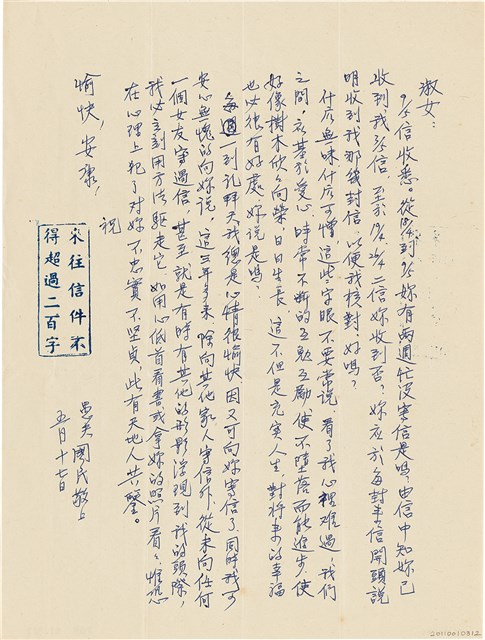 淑女：
9/5信收悉。從19/4到9/5妳有兩週忙沒寫信是嗎，由信中知妳已
收到我3/5信，至於19/4 26/4二信妳收到否？妳应於每封来信開頭說
明收到我那幾封信，以便我核對，好嗎？
什広無味什広可憎這些字眼不要常說，看了我心裡难過，我們
之間，应基於愛心，時常不断的互勉互勵，使不墮落而能進步，使
好像樹木欣欣向榮，日日生長，這不但是充实人生，對将来的幸福
也必很有好處，妳說是嗎，
每週一到礼拜天我總是心情很愉快，因又可向妳寫信了，同時我可
安心無愧的向妳說，這三年多来，除向其他家人寫信外，從未向任何
一個女友寫過信，甚至就是有時有其他的形影浮現到我的頭際，
我必立刻用方法驅走它，如用心低首看書或拿妳的照片看看，惟恐
在心理上犯了对妳不忠實不堅貞，此有天地人共鑒。
祝
愉快，安康，
愚夫國民敬上
五月十七日
来往信件不
得超過二百字
20110010312